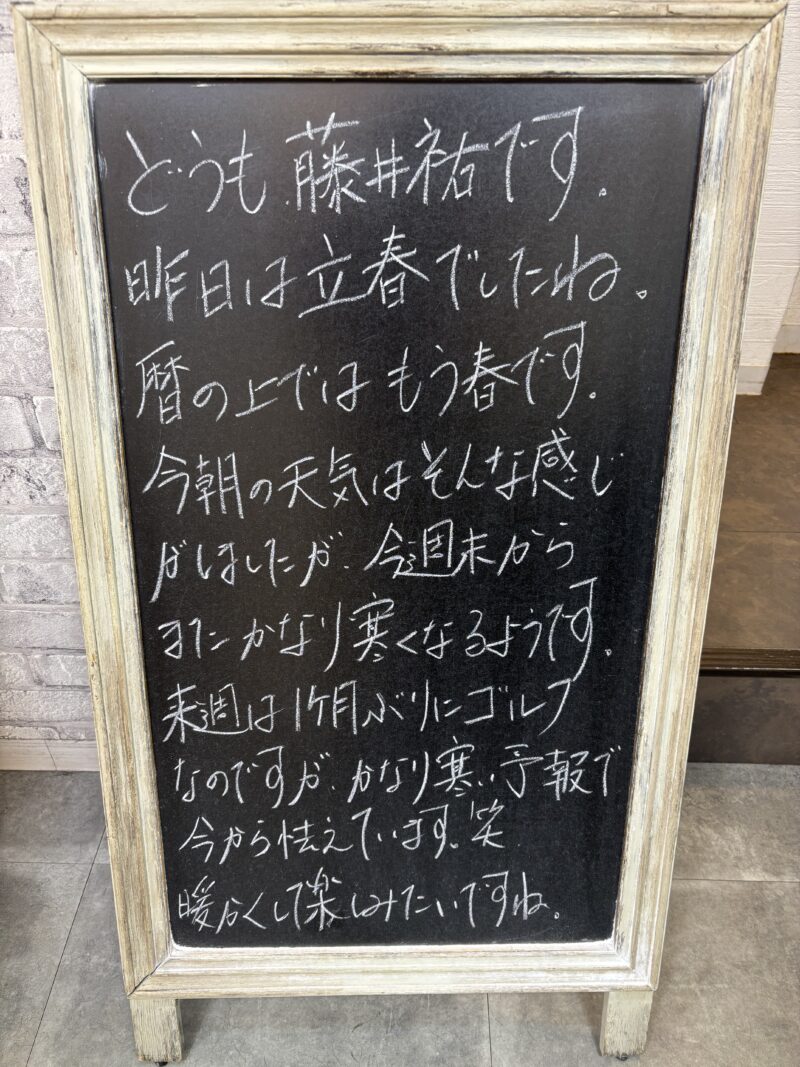 どうも、藤井祐です。
昨日は立春でしたね。
暦の上では もう春です。
今朝の天気は そんな感じ
がしましたが、今週末から
またかなり寒くなるようです。
来週は1ヶ月ぶりにゴルフ
なのですが、かなり寒い予報で
今から怯えています。笑
暖かくして楽しみたいですね。